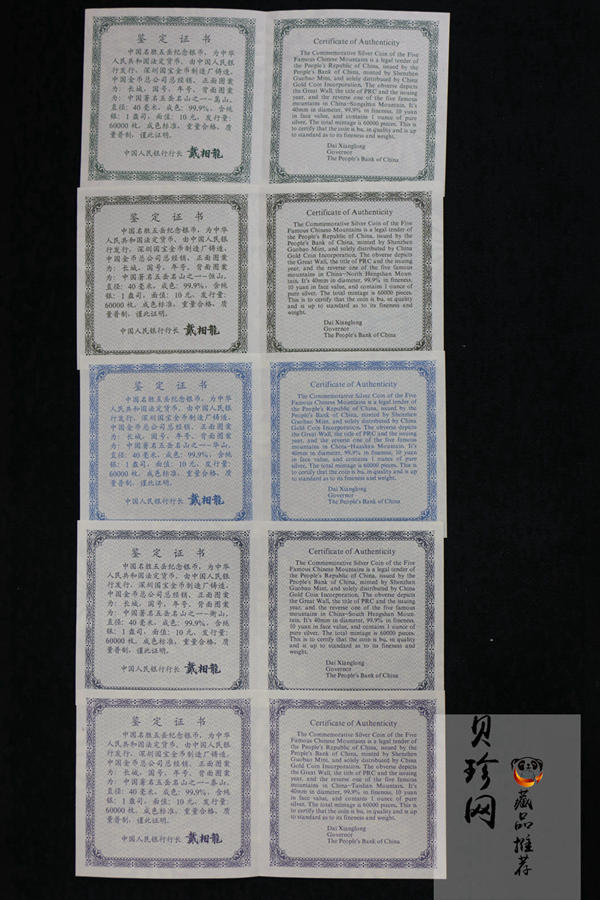 鉴定证书
中国名胜五岳纪念银币，为中华
人民共和国法定货币。由中国人民银
行发行，深圳国宝金币制造厂铸造，
中国金币总公司总经销。正面图案
为：长城，国号，年号。背面图案
为：中国著名五岳名山之一--嵩山，
直径：40毫米，成色：99.9%，含纯
银：1盎司，面值：10元，发行量：
60000枚，成色标准，重量合格，质
量普制，谨此证明。
中国人民银行行长 戴相龍
Certificate of Authenticity
The Commemorative Silver Coin of the Five
Famous Chinese Mountains is a legal tender
of the People's Republic of China, issued by the
People's Bank of China, minted by Shenzhen
Guobao Mint, and solely distributed by China
Gold Coin Incorporation. The obverse depicts
the Great Wall, the title of PRC and the issuing
year, and the reverse one of the five famous
mountains in China-Songshan Mountain. It's
40mm in diameter, 99.9% in fineness, 10 yuan
in face value, and contains 1 ounce of pure
silver. The total mintage is 60000 pieces. This is
to certify that the coin is bu, in quality and is up
to standard as to its fineness and weight.
Dai Xianglong
Governor
The People's Bank of China
鉴定证书
中国名胜五岳纪念银币，为中华
人民共和国法定货币。由中国人民银
行发行，深圳国宝金币制造厂铸造，
中国金币总公司总经销。正面图案
为：长城，国号，年号。背面图案
为：中国著名五岳名山之一--恒山，
直径：40毫米，成色：99.9%，含纯
银：1盎司，面值：10元，发行量：
60000枚，成色标准，重量合格，质
量普制，谨此证明。
中国人民银行行长 戴相龍
Certificate of Authenticity
The Commemorative Silver Coin of the Five
Famous Chinese Mountains is a legal tender of
the People's Republic of China, issued by the
People's Bank of China, minted by Shenzhen
Guobao Mint, and solely distributed by China
Gold Coin Incorporation. The obverse depicts
the Great Wall, the title of PRC and the issuing
year, and the reverse one of the five famous
mountains in China-North Hengshan Moun-
tain. It's 40mm in diameter, 99.9% in fineness,
10 yuan in face value, and contains 1 ounce of
pure silver. The total mintage is 60000 pieces.
This is to certify that the coin is bu, in quality
and is up to standard as to its fineness and
weight.
Dai Xianglong
Governor
The People's Bank of China
鉴定证书
中国名胜五岳纪念银币，为中华
人民共和国法定货币。由中国人民银
行发行，深圳国宝金币制造厂铸造，
中国金币总公司总经销。正面图案
为：长城，国号，年号。背面图案
为：中国著名五岳名山之一--华山，
直径：40毫米，成色：99.9%，含纯
银：1盎司，面值：10元，发行量：
60000枚，成色标准，重量合格，质
量普制，谨此证明。
中国人民银行行长 戴相龍
Certificate of Authenticity
The Commemorative Silver Coin of the Five
Famous Chinese Mountains is a legal tender of
the People's Republic of China, issued by the
People's Bank of China, minted by Shenzhen
Guobao Mint, and solely distributed by China
Gold Coin Incorporation. The obverse depicts
the Great Wall, the title of PRC and the issuing
year, and the reverse one of the five famous
mountains in China-Huashan Mountain. It's
40mm in diameter, 99.9% in fineness, 10 yuan
in face value, and contains 1 ounce of pure
silver. The total mintage is 60000 pieces. This is
to certify that the coin is bu, in quality and is up
to standard as to its fineness and weight.
Dai Xianglong
Governor
The People's Bank of China
鉴定证书
中国名胜五岳纪念银币，为中华
人民共和国法定货币。由中国人民银
行发行，深圳国宝金币制造厂铸造，
中国金币总公司总经销。正面图案
为：长城，国号，年号。背面图案
为：中国著名五岳名山之一--衡山，
直径：40毫米，成色：99.9%，含纯
银：1盎司，面值：10元，发行量：
60000枚，成色标准，重量合格，质
量普制，谨此证明。
中国人民银行行长 戴相龍
Certificate of Authenticity
The Commemorative Silver Coin of the Five
Famous Chinese Mountains is a legal tender of
the People's Republic of China, issued by the
People's Bank of China, minted by Shenzhen
Guobao Mint, and solely distributed by China
Gold Coin Incorporation. The obverse depicts
the Great Wall, the title of PRC and the issuing
year, and the reverse one of the five famous
mountains in China-South Hengshan Moun-
tain. It's 40mm in diameter, 99.9% in fineness,
10 yuan in face value, and contains 1 ounce of
pure silver. The total mintage is 60000 pieces.
This is to certify that the coin is bu, in quality
and is up to standard as to its fineness and
weight.
Dai Xianglong
Governor
The People's Bank of China
鉴定证书
中国名胜五岳纪念银币，为中华
人民共和国法定货币。由中国人民银
行发行，深圳国宝金币制造厂铸造，
中国金币总公司总经销。正面图案
为：长城，国号，年号。背面图案
为：中国著名五岳名山之一--泰山，
直径：40毫米，成色：99.9%，含纯
银：1盎司，面值：10元，发行量：
60000枚，成色标准，重量合格，质
量普制，谨此证明。
中国人民银行行长 戴相龍
Certificate of Authenticity
The Commemorative Silver Coin of the Five
Famous Chinese Mountains is a legal tender of
the People's Republic of China, issued by the
People's Bank of China, minted by Shenzhen
Guobao Mint, and solely distributed by China
Gold Coin Incorporation. The obverse depicts
the Great Wall, the title of PRC and the issuing
year, and the reverse one of the five famous
mountains in China-Taishan Mountain. It's
40mm in diameter, 99.9% in fineness, 10 yuan
in face value, and contains 1 ounce of pure
silver. The total mintage is 60000 pieces. This is
to certify that the coin is bu, in quality and is up
to standard as to its fineness and weight.
Dai Xianglong
Governor
The People's Bank of China
贝珍网
藏品推荐